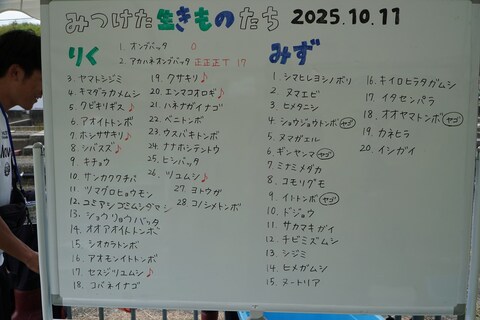 みつけた生きものたち 2025.10.11
りく
1. オンブバッタ 0
2. アカハネオンブバッタ 正正正丅 17
3. ヤマトシジミ
4. キマダラカメムシ
5. クビキリギス♪
6. アオイトトンボ
7. ホシササキリ♪
8. シバスズ♪
9. キチョウ
10. サンカクワチバ
11. ツマグロヒョウモン
12. コミヤシコミムシダマシ
13. ショウリョウバッタ
14. オオアオイトトンボ
15. シオカラトンボ
16. アオモンイトトンボ
17. セスジツユムシ♪
18. コバネイナゴ
19. クサキリ♪
20. エンマコオロギ♪
21. ハネナガイナゴ
22. ベニトンボ
23. ウスバキトンボ
24. ナナホシテントウ
25. ヒシバッタ
26. ツユムシ♪
27. ヨトウガ
28. コノシメトンボ
みず
1. シマヒレヨシノボリ
2. ヌマエビ
3. ヒメタニシ
4. ショウジョウトンボ ヤゴ
5. ヌマガエル
6. ギンヤンマ ヤゴ
7. ミナミメダカ
8. コモリグモ
9. イトトンボ ヤゴ
10. ドジョウ
11. サカマキガイ
12. チビミズムシ
13. シジミ
14. ヒメガムシ
15. ヌートリア
16. キイロヒラタガムシ
17. イタセンパラ
18. オオヤマトンボ ヤゴ
19. カネヒラ
20. イシガイ